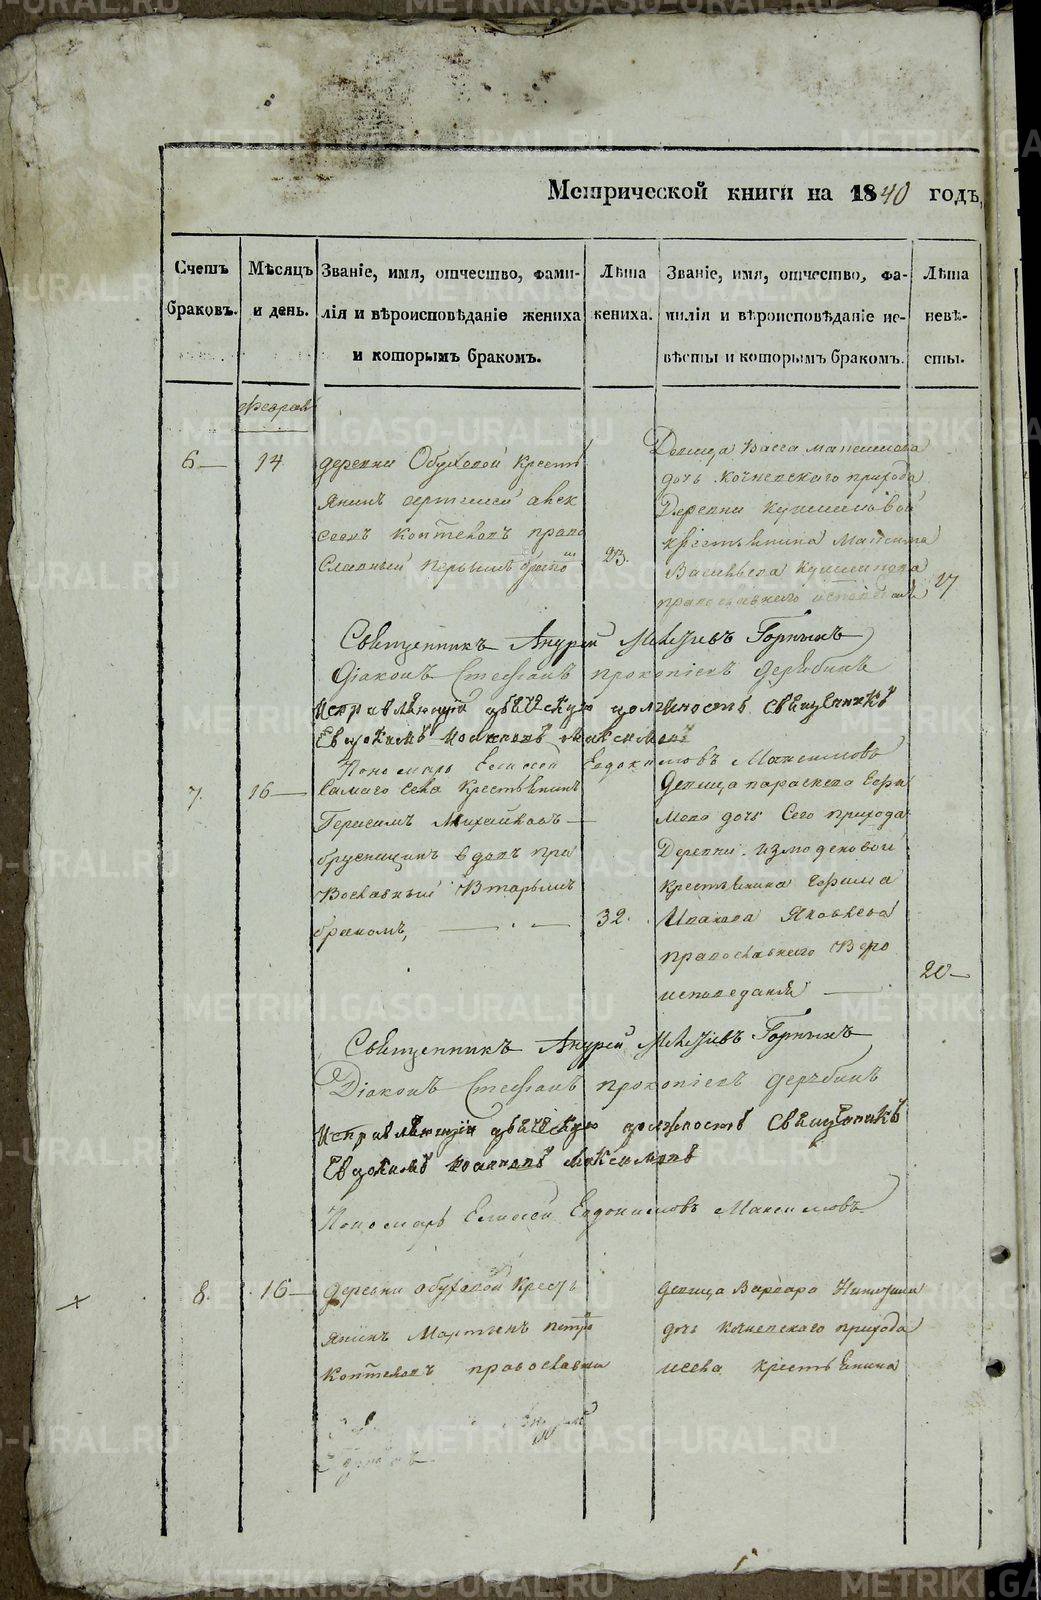 Метрической книги на 1840 годъ,
Счетъ браковъ.
Мѣсяцъ и день.
Званіе, имя, отчество, фами-
лія и вѣроисповѣданіе жениха
и которымъ бракомъ.
Лѣта
жениха.
Званіе, имя, отчество, фа-
милія и вѣроисповѣданіе не-
вѣсты и которымъ бракомъ.
Лѣта
невѣ-
сты.
6 — 14
деревни Обуховой Кресть
янинъ
сеевъ Коптеловъ право
славный первымъ
23.
Девица Васса Максимова
дочь Кочневского прихода
Деревни
крестьянина Максима
Васильева
православного
17
Священникъ Андрей Горныхъ
Діаконъ Стефанъ Прокопіевъ Дерябинъ
Исправляющій дьяческую должность священникъ
Евдокимъ Иоанновъ Максимовъ
Пономарь Елисей Евдокимовъ Максимовъ
7. 16 —
самаго села крестьянинъ
Герасимъ Михайловъ —
Брусницинъ вдовъ пра
вославный вторымъ
бракомъ, —
32.
Девица параскева Ефи
мова дочь Сего прихода
Деревни измоденовой
крестьянина Ефима
Иванова Яковлева
православного Веро
исповедания —
20 —
Священникъ Андрей Горныхъ
Діаконъ Стефанъ Прокопіевъ Дерябинъ
Исправляющій дьяческую должность священникъ
Евдокимъ Иоанновъ Максимовъ
Пономарь Елисей Евдокимовъ Максимовъ
8. 16 —
деревни обуховой Кресть
янинъ Мартынъ петро
Коптеловъ православны
девица Варвара
дочь кочневского прихода
села крестьянина
METRIKI.GASO-URAL.RU